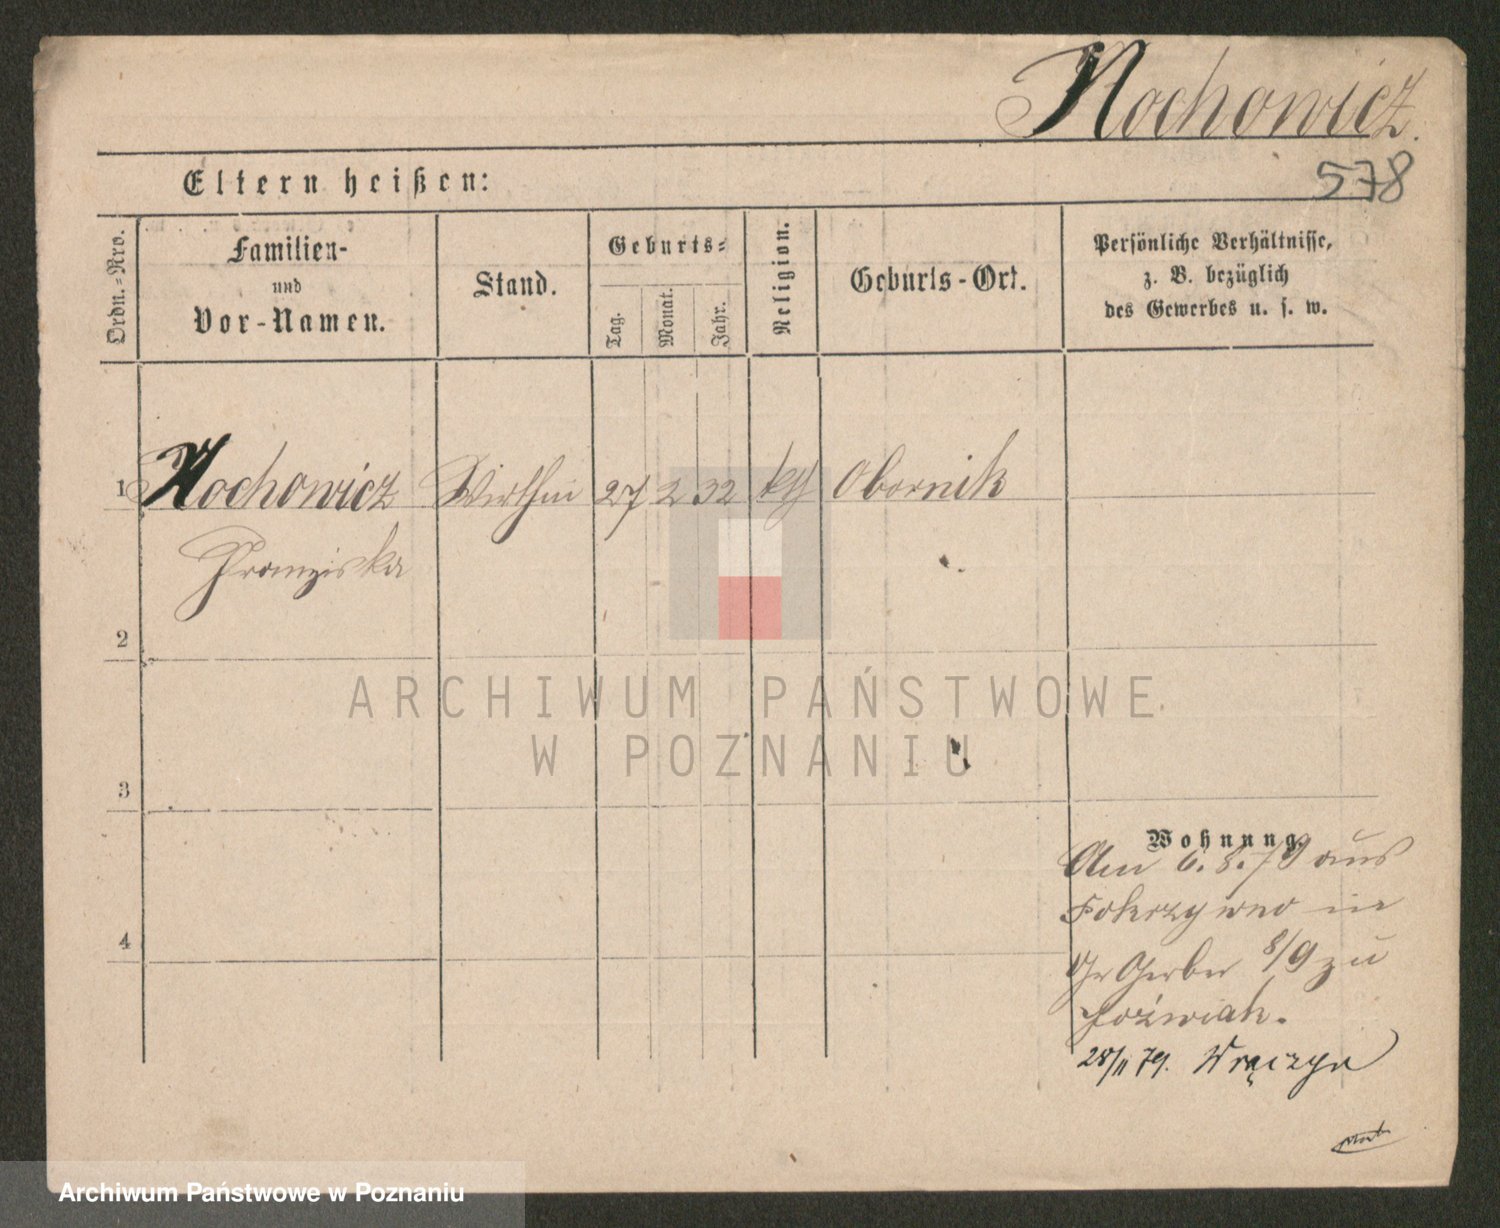 Nochowicz.
578
Eltern heißen:
Ordn.-Nro.
Familien-
und
Vor-Namen.
Stand.
Geburts-
Tag.
Monat.
Jahr.
Religion.
Geburts-Ort.
Persönliche Verhältnisse,
z. B. bezüglich
des Gewerbes u. s. w.
1 Nochowicz Wirthin 27 2 32 kth Obornik
Franziska
2
ARCHIWUM PAŃSTWOWE
W POZNANIU
3
Wohnung.
Am 6.8.79 aus
Pokrzywno in
4
Gr Gerber 8/9 zu
Joźwiak.
28/11 79.
Archiwum Państwowe w Poznaniu